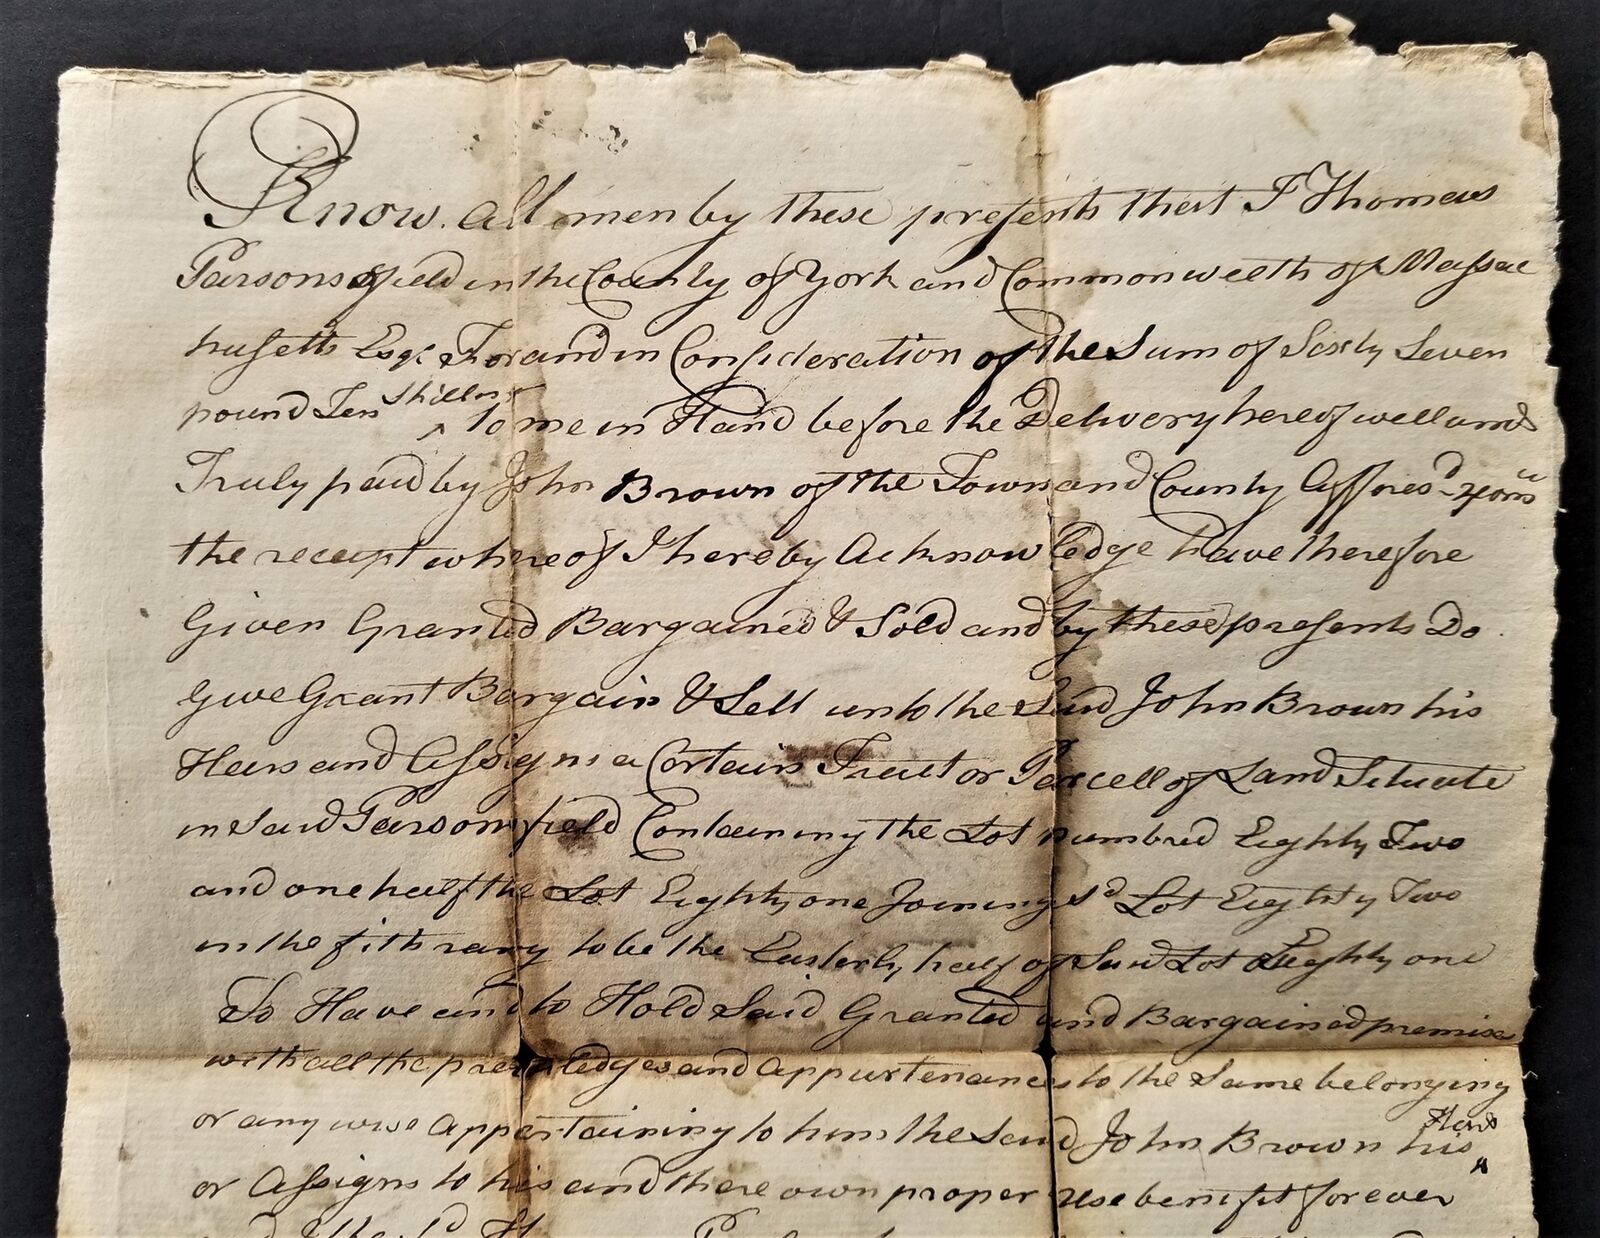 Know all men by these presents that I Thomas
Parsonsfield in the County of York and Commonweelth of Massac
husetts Esqr For and in Consideration of the Sum of Sixty Seven
pound Ten shillings to me in Hand before the Delivery hereof well and
Truly paid by John Brown of the Town and County Affores'd
the receept whereof I hereby Acknowledge have therefore
Given Granted Bargained & Sold and by these presents Do
Give Grant Bargain & Sell unto the Said John Brown his
Heirs and Assigns a Certain Tract or Parcell of Land Situate
in said Parsonsfield Containing the Lot numbred Eighty Two
and one half the Lot Eighty one Joining sd Lot Eighty Two
in the fith rang to be the Easterly half of Said Lot Eighty one
To Have and to Hold Said Granted and Bargained premise
with all the and appurtenances to the Same belonging
or any wise appertaining to him the Said John Brown his Heirs
or Assigns to his and there own proper use benifit forever